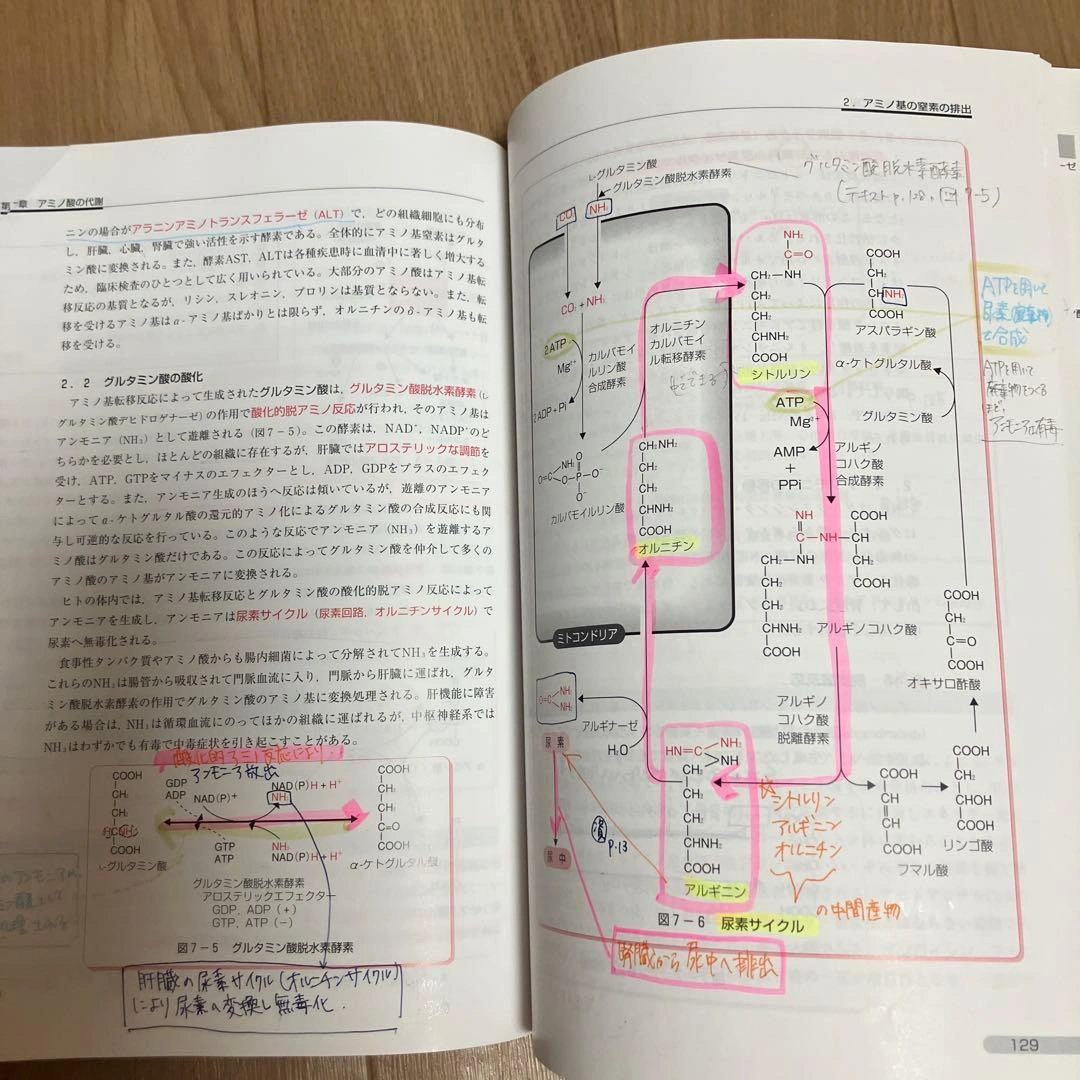 第 章 アミノ酸の代謝
ニンの場合がアラニンアミノトランスフェラーゼ（ALT）で，どの組織細胞にも分布
し，肝臓，心臓，腎臓で強い活性を示す酵素である。全体的にアミノ基窒素はグルタ
ミン酸に変換される。また，酵素AST，ALTは各種疾患時に血清中に著しく増大する
ため，臨床検査のひとつとして広く用いられている。大部分のアミノ酸はアミノ基転
移反応の基質となるが，リシン，スレオニン，プロリンは基質とならない。また，転
移を受けるアミノ基はα-アミノ基ばかりとは限らず，オルニチンのδ-アミノ基も転
移を受ける。
2．2 グルタミン酸の酸化
アミノ基転移反応によって生成されたグルタミン酸は，グルタミン酸脱水素酵素（L-
グルタミン酸デヒドロゲナーゼ）の作用で酸化的脱アミノ反応が行われ，そのアミノ基は
アンモニア（NH₃）として遊離される（図7－5）。この酵素は，NAD⁺，NADP⁺のど
ちらかを必要とし，ほとんどの組織に存在するが，肝臓ではアロステリックな調節を
受け，ATP，GTPをマイナスのエフェクターとし，ADP，GDPをプラスのエフェク
ターとする。また，アンモニア生成のほうへ反応は傾いているが，遊離のアンモニア
によってα-ケトグルタル酸の還元的アミノ化によるグルタミン酸の合成反応にも関
与し可逆的な反応を行っている。このような反応でアンモニア（NH₃）を遊離するア
ミノ酸はグルタミン酸だけである。この反応によってグルタミン酸を仲介して多くの
アミノ酸のアミノ基がアンモニアに変換される。
ヒトの体内では，アミノ基転移反応とグルタミン酸の酸化的脱アミノ反応によって
アンモニアを生成し，アンモニアは尿素サイクル（尿素回路，オルニチンサイクル）で
尿素へ無毒化される。
食事性タンパク質やアミノ酸からも腸内細菌によって分解されてNH₃を生成する。
これらのNH₃は腸管から吸収されて門脈血流に入り，門脈から肝臓に運ばれ，グルタ
ミン酸脱水素酵素の作用でグルタミン酸のアミノ基に変換処理される。肝機能に障害
がある場合は，NH₃は循環血流にのってほかの組織に運ばれるが，中枢神経系では
NH₃はわずかでも有毒で中毒症状を引き起こすことがある。
酸化的アミノ反応により
アンモニア放出
COOH
CH₂
CH₂
COOH
L-グルタミン酸
GDP
ADP
NAD(P)+
NH₃
NAD(P)H + H⁺
GTP
ATP
NH₃
NAD(P)H + H⁺
COOH
CH₂
CH₂
C=O
COOH
α-ケトグルタル酸
グルタミン酸脱水素酵素
アロステリックエフェクター
GDP，ADP（+）
GTP，ATP（−）
図7－5 グルタミン酸脱水素酵素
肝臓の尿素サイクル(オルニチンサイクル)
により尿素へ変換し無毒化．
2．アミノ基の窒素の排出
L-グルタミン酸
グルタミン酸脱水素酵素
グルタミン酸脱水素酵素
(テキストp.128,図7-5)
CO₂
NH₃
CO₂ + NH₃
2ATP
Mg²⁺
カルバモイ
ルリン酸
合成酵素
2ADP + Pi
カルバモイルリン酸
オルニチン
カルバモイ
ル転移酵素
CH₂-NH₂
CH₂
CH₂
CHNH₂
COOH
オルニチン
ミトコンドリア
NH₂
C=O
CH₂-NH
CH₂
CH₂
CHNH₂
COOH
シトルリン
COOH
CH₂
CH-NH₂
COOH
アスパラギン酸
α-ケトグルタル酸
グルタミン酸
ATPを用いて
尿素(窒素物)
を合成
ATPを用いて
アンモニアは有毒
ATP
Mg²⁺
AMP
+
PPi
アルギノ
コハク酸
合成酵素
NH
C-NH-CH
CH₂-NH
CH₂
CH₂
CHNH₂
COOH
COOH
CH₂
COOH
アルギノコハク酸
アルギノ
コハク酸
脱離酵素
COOH
CH₂
C=O
COOH
オキサロ酢酸
COOH
CH₂
CHOH
COOH
リンゴ酸
COOH
CH
CH
COOH
フマル酸
O=C
NH₂
NH₂
尿素
尿中
アルギナーゼ
H₂O
HN=C
NH₂
NH
CH₂
CH₂
CH₂
CHNH₂
COOH
アルギニン
p.13
シトルリン
アルギニン
オルニチン
の中間産物
図7－6 尿素サイクル
腎臓から尿中へ排出
129